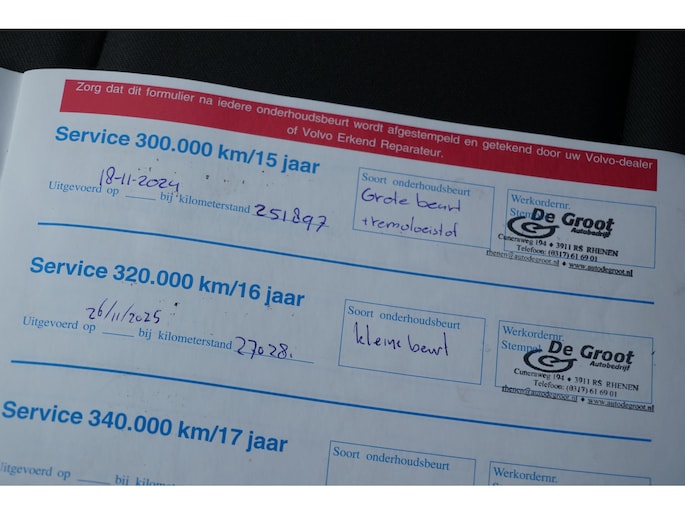 Zorg dat dit formulier na iedere onderhoudsbeurt wordt afgestempeld en getekend door uw Volvo-dealer
of Volvo Erkend Reparateur.
Service 300.000 km/15 jaar
Soort onderhoudsbeurt
Grote beurt
+remvloeistof
Werkordernr.
Stempel
De Groot
Autobedrijf
Cuneraweg 194 ♦ 3911 RS RHENEN
Telefoon: (0317) 61 69 01
rhenen@autodegroot.nl ♦ www.autodegroot.nl
18-11-2024
Uitgevoerd op ____ bij kilometerstand 251897
Service 320.000 km/16 jaar
Soort onderhoudsbeurt
kleine beurt
Werkordernr.
Stempel
De Groot
Autobedrijf
Cuneraweg 194 ♦ 3911 RS RHENEN
Telefoon: (0317) 61 69 01
rhenen@autodegroot.nl ♦ www.autodegroot.nl
26/11/2025
Uitgevoerd op ____ bij kilometerstand 27028.
Service 340.000 km/17 jaar
Soort onderhoudsbeurt
Werkordernr.
Stempel
Uitgevoerd op ____ bij kilometerstand